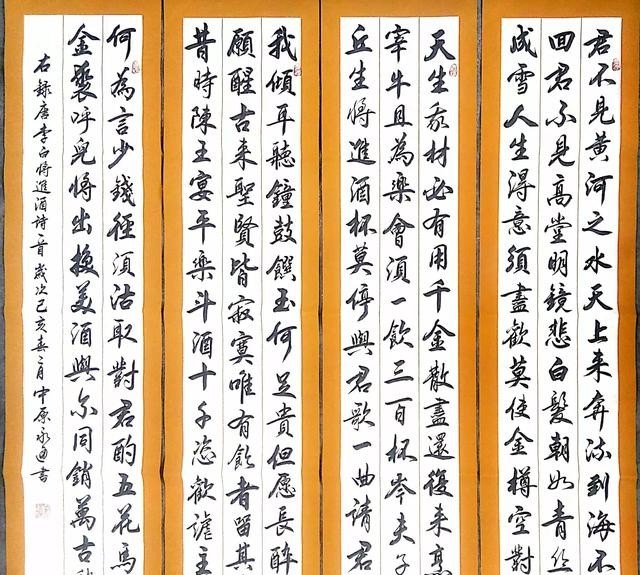 君不見黃河之水天上来奔流到海不
回君不見高堂明鏡悲白髮朝如青丝
成雪人生得意須盡歡莫使金樽空對
天生我材必有用千金散盡還復来烹
宰牛且為樂會須一飲三百杯岑夫子
丘生將進酒杯莫停與君歌一曲请君
我傾耳聽鐘鼓饌玉何足貴但愿長醉
願醒古来聖賢皆寂寞唯有飲者留其
昔時陳王宴平樂斗酒十千恣歡謔主
何為言少錢徑須沽取對君酌五花馬
金裘呼兒將出換美酒與尔同銷萬古
右錄唐李白將進酒詩首歲次己亥春月中原永通書